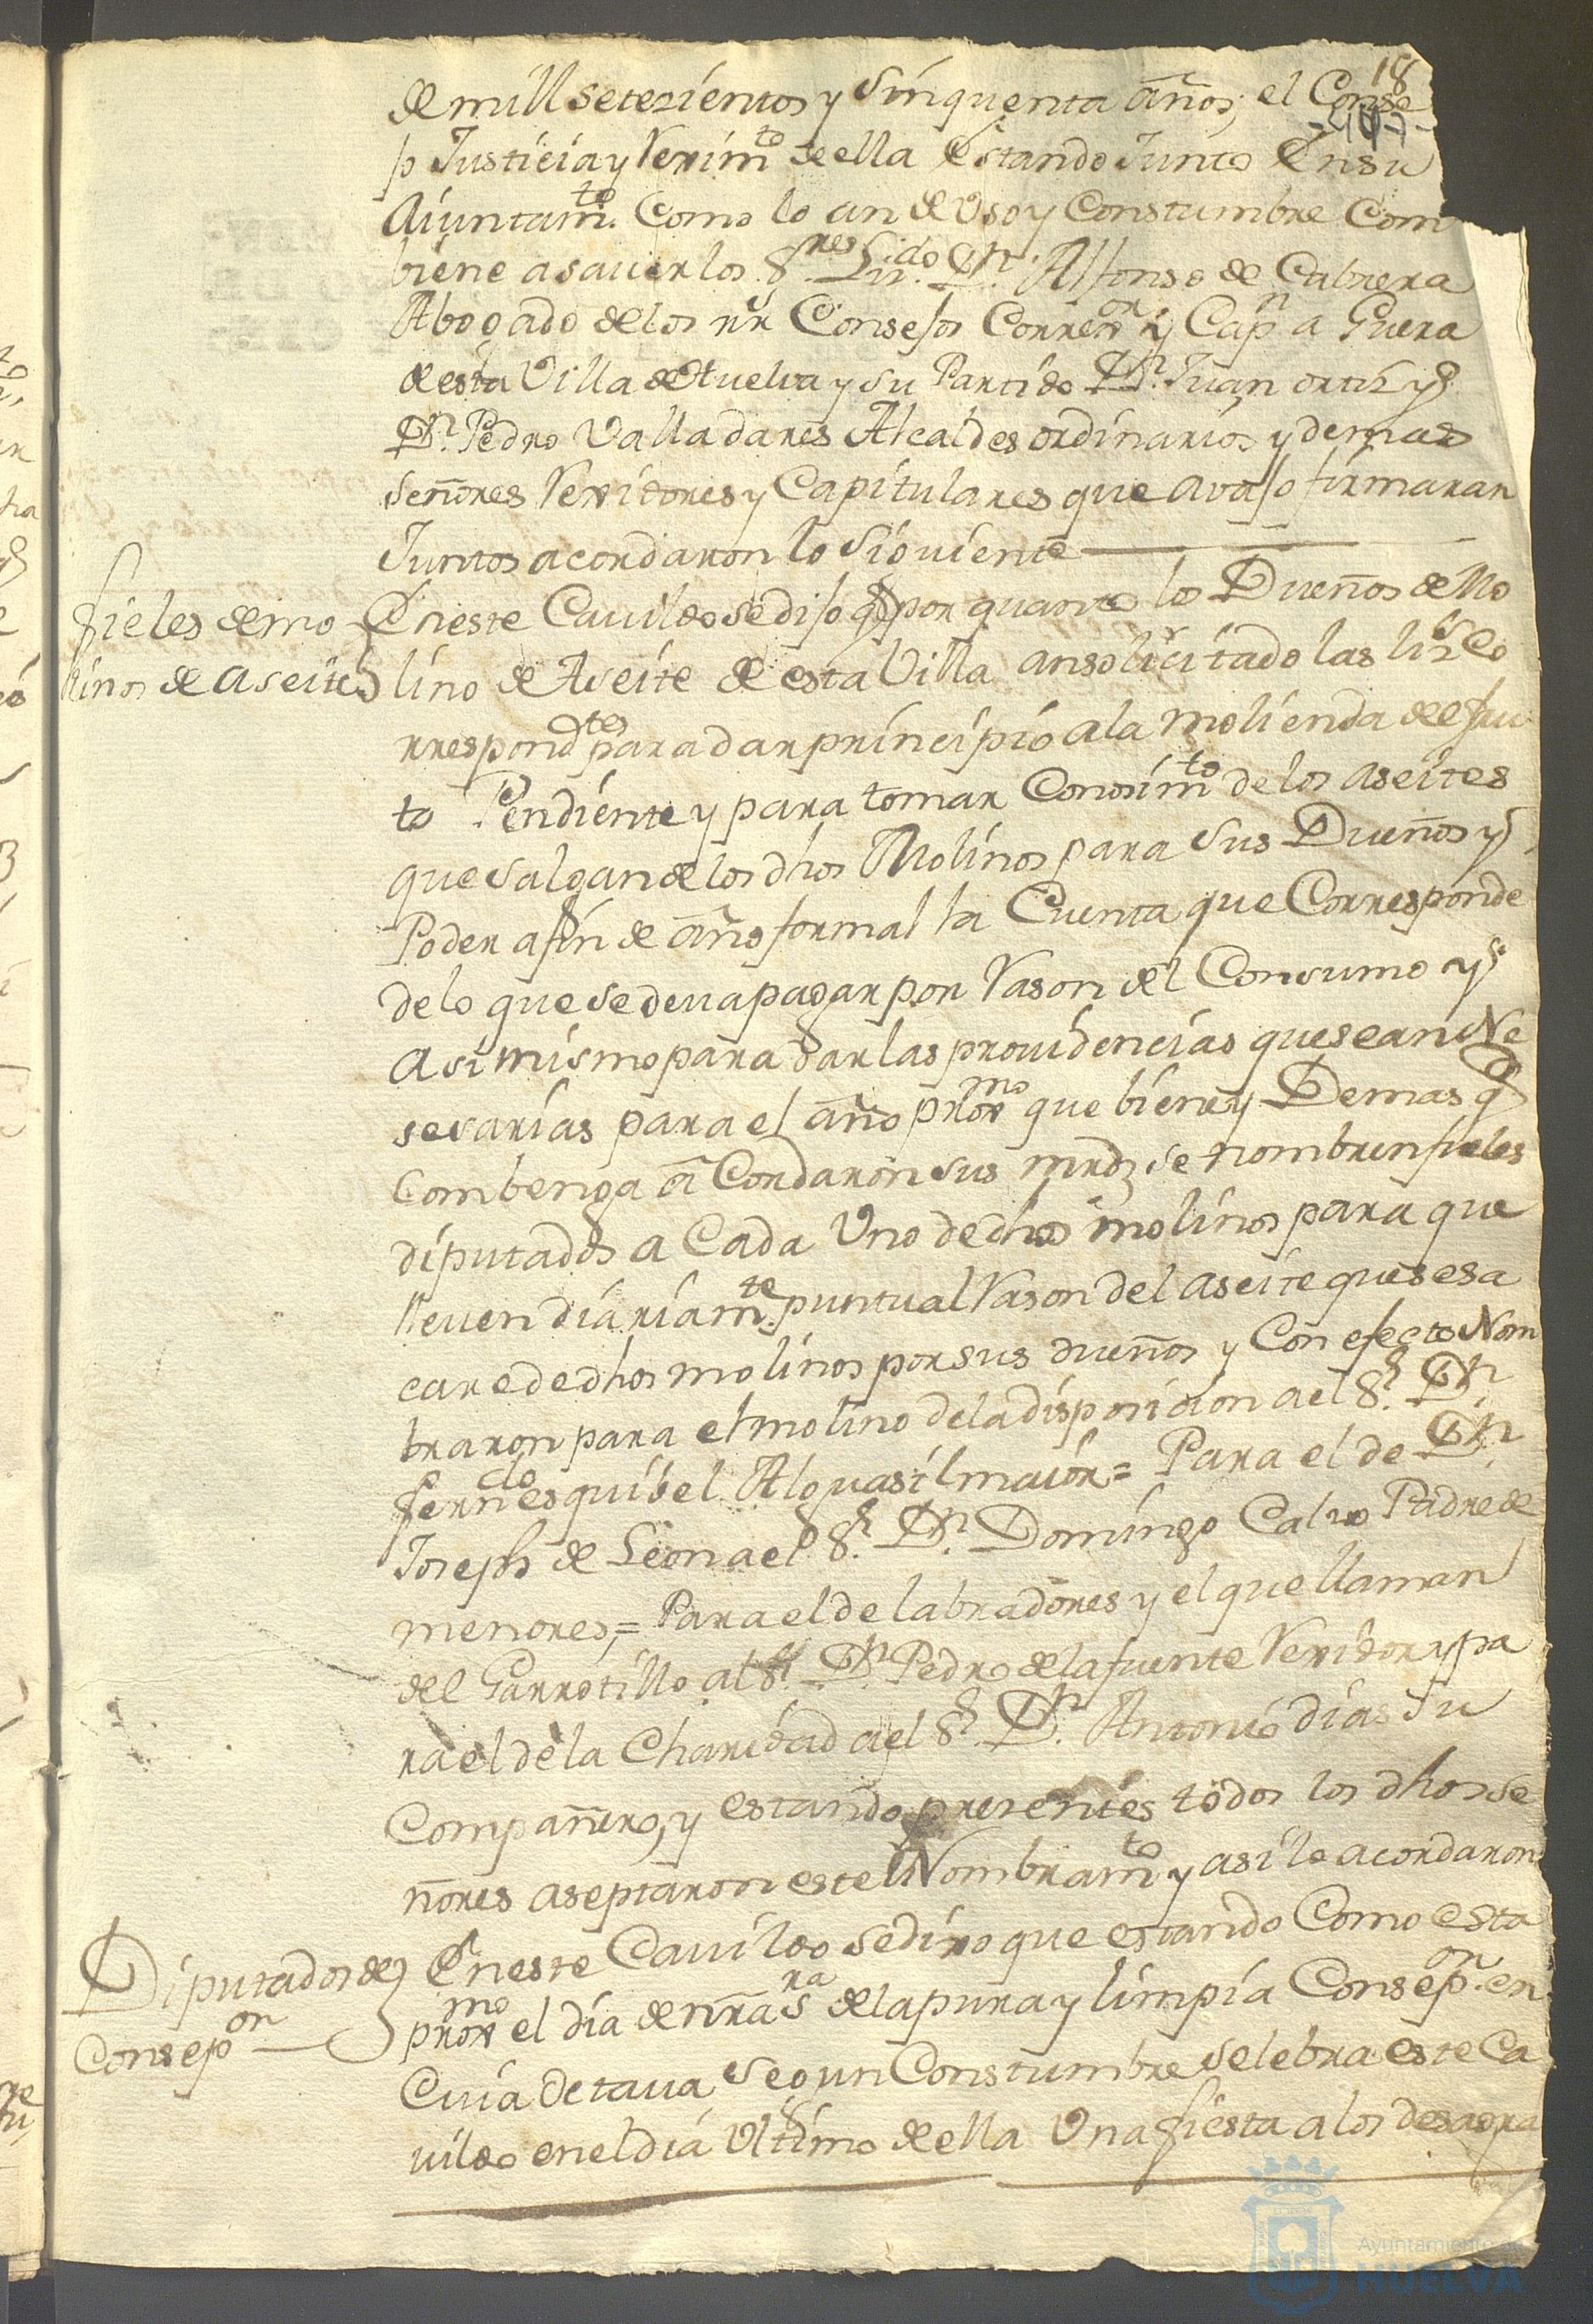 18
de mill setezientos y Sinquenta años, el Conse
jo Justicia y Rexim.to de ella Estando Junto En su
Aiuntam.to Como lo an de Uso y Constumbre Com
biene a sauer los S.res Liz.do D.n Alfonso de Cabrera
Abogado de los rr.s Consejos Corre.or y Cap.n a Guera
de esta Villa de Huelva y su Partido D.n Juan ortiz y
D.n Pedro Valladares Alcaldes ordinarios y demas
Señores Rexidores y Capitulares que avajo firmaran
Juntos acordaron lo Siguiente
fieles de mo
linos de aseite
En este Cauildo se dijo q.e por quanto los Dueños de Mo
lino de Aseite de esta Villa an solicitado las liz.s Co
rrespond.tes para dar principio a la molienda de el fru
to Pendiente y para tomar Conosim.to de los aseites
que Salgan de los dhos Molinos para Sus Dueños y
Poder a fin de año formal la Cuenta que Corresponde
de lo que se deua pagar por Rason del Consumo y
Asi mismo para dar las prouidencias que sean Ne
sesarias para el año pror.mo que biene y Demas q.e
Combenga a Cordaron sus mrds se nombren fieles
diputados a Cada Uno de dhos molinos para que
lleuen diariam.te puntual Rason del aseite que se sa
care de dhos molinos por sus dueños y Con efecto Nom
braron para el molino de la disposicion a el S.r D.n
fern.do esquibel Alguasil maior = Para el de D.n
Joseph de Leon a el S.r D.n Domingo Calvo Padre de
menores, = Para el de labradores y el que llaman
del Garrotillo al S.r D.n Pedro de la fuente Rexidor y pa
ra el de la Charidad a el S.r D.n Antonio dias Su
Compañero, y estando presentes todos los dhos se
ñores aseptaron este Nombram.to y asi lo acordaron
Diputados de
Consep.on
En este Cauildo se dixo que estando Como esta
pror.mo el dia de nra S.ra de la pura y limpia Consep.on en
Cuia Octaua Segun Constumbre Selebra este Ca
uildo en el dia Ultimo de ella Una fiesta a los desagra
Ayuntamiento de
HUELVA